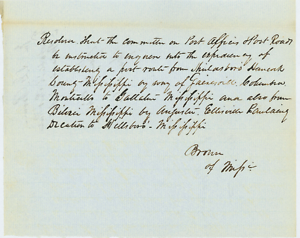 Resolved that the committee on Post Offices & Post Roads
be instructed to enquire into the expediency of
establishing a post route from Shieldsboro Hancock
County Mississippi by way of Gainesville Columbia
Monticello to Gallatin Mississippi and also from
Biloxi Mississippi by Augusta Ellisville Paulding
Decatur to Hillsboro Mississippi
Brown
of Missi